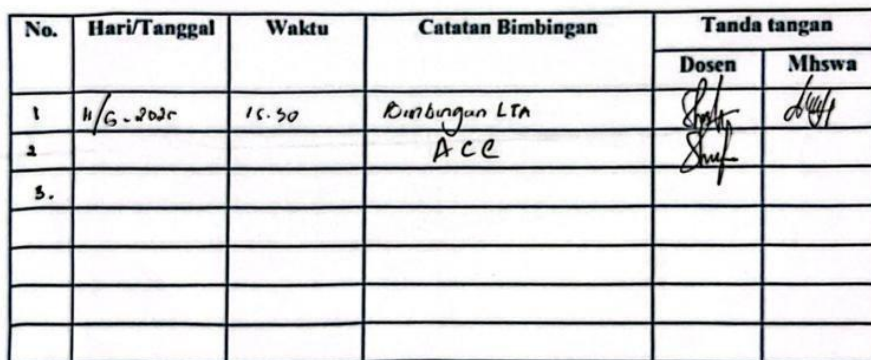 No. Hari/Tanggal Waktu Catatan Bimbingan Tanda tangan
Dosen Mhswa
1 11/6-2025 15.30 Bimbingan LTA
2 ACC
3.